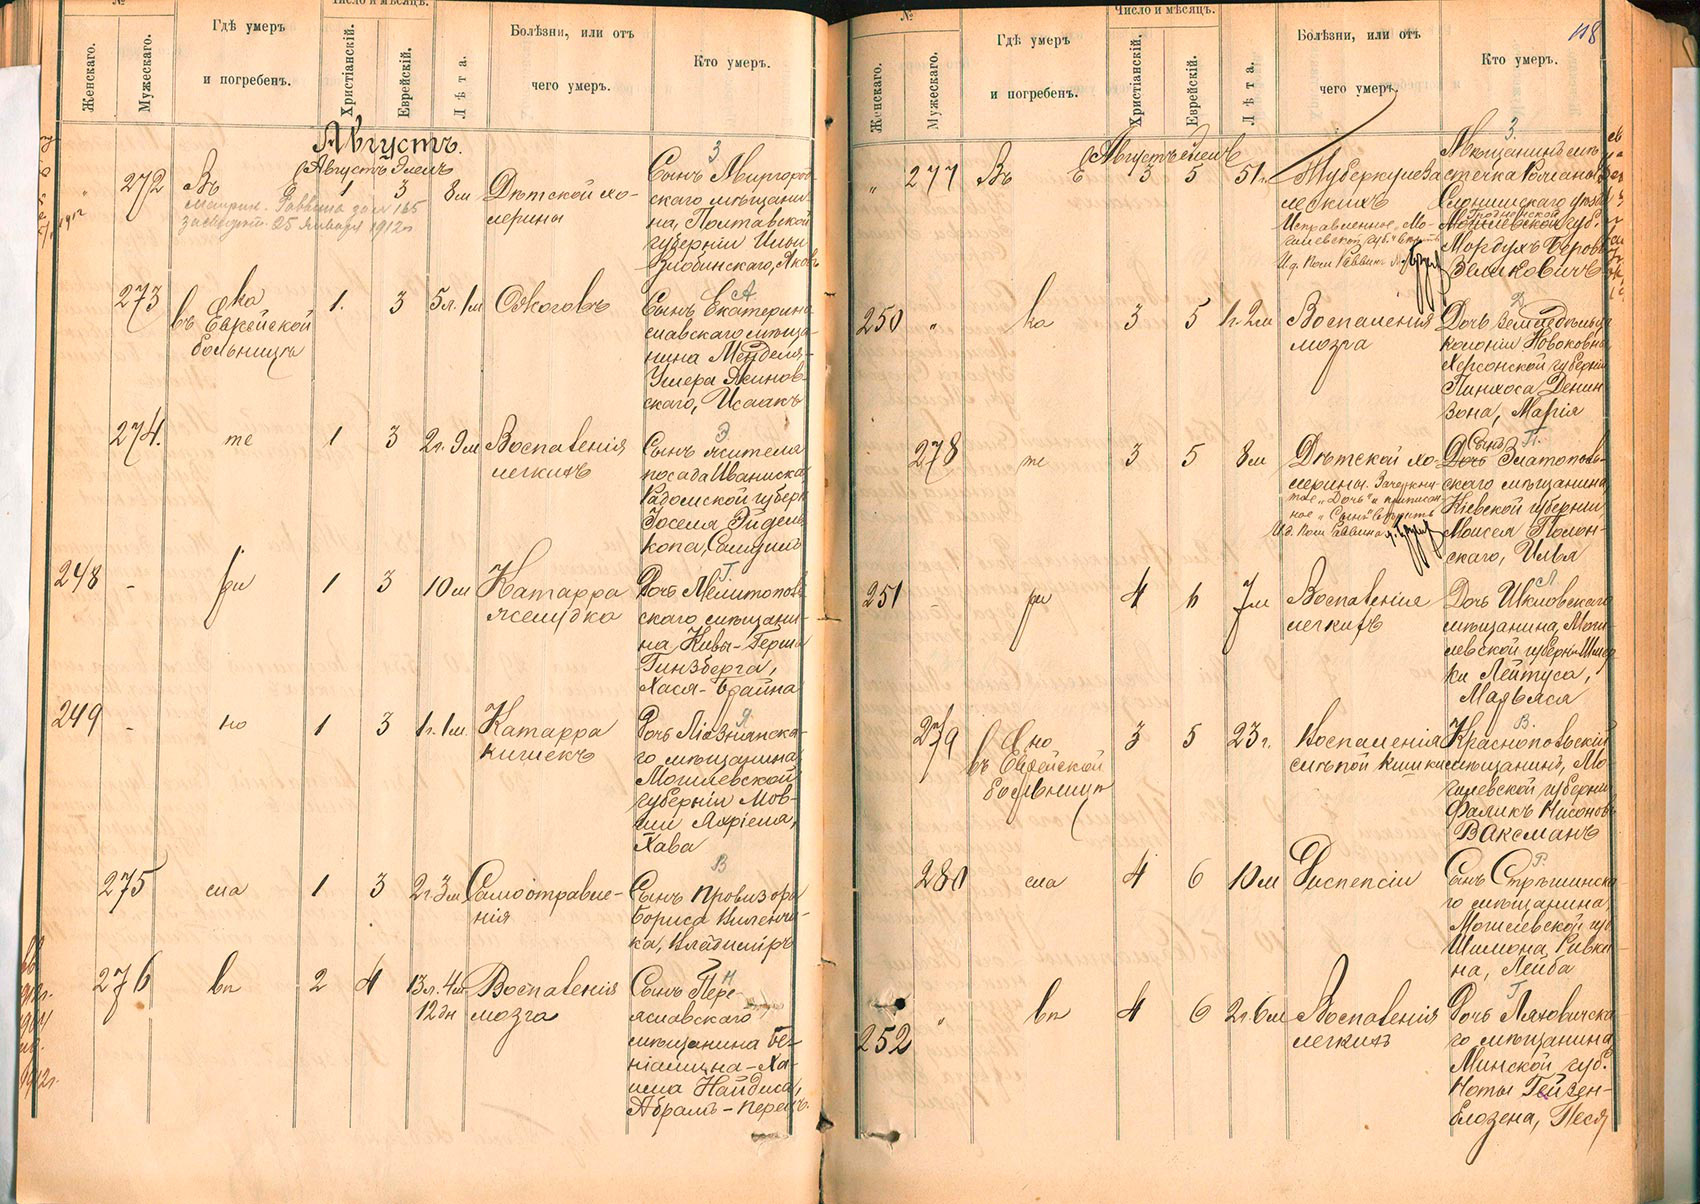 №
Число и мѣсяцъ.
Женскаго.
Мужескаго.
Гдѣ умеръ
и погребенъ.
Христіанскій.
Еврейскій.
Лѣта.
Болѣзни, или отъ
чего умеръ.
Кто умеръ.
Августъ.
Августъ Элелъ
272
Въ
1
3
8 м
Дѣтской хо-
лерины
З
Сынъ Миргород-
скаго мѣщани-
на, Полтавской
губерніи Ильи
Злобинскаго, Яковъ
25 Января 1912 г.
273
въ Еврейской
больницѣ
1.
3
5 л. 1 м
Ожоговъ
Я
Сынъ Екатерино-
славскаго мѣща-
нина Менделя-
Умера Якинов-
скаго, Исаакъ
274.
те
1
3
2 г. 9 м
Воспаленія
легкихъ
Э
Сынъ жителя
посада Иваниска
Радомской губерн
Іоселя Эйдель-
копа,
248
-
ри
1
3
10 м
Катарра
желудка
Г.
Дочь Мелитополь-
скаго мѣщани-
на, Кивы-Герша
Гинзберга,
Хася-Брайна
249
-
но
1
3
1 г. 1 м
Катарра
кишекъ
Я
Дочь Ліознянска-
го мѣщанина
Могилевской
губерніи Мов-
ши Яхріела,
Хава
275
сла
1
3
2 г. 3 м
Самоотравле-
нія
В
Сынъ провизора
Бориса Виленчи-
ка, Владиміръ
276
вп
2
4
13 л. 4 м
12 дн
Воспаленія
мозга
Н
Сынъ Пере-
яславскаго
мѣщанина Бе-
ніамина-Ха-
има Найдиса,
Абрамъ-Перецъ.
№
Число и мѣсяцъ.
118
Женскаго.
Мужескаго.
Гдѣ умеръ
и погребенъ.
Христіанскій.
Еврейскій.
Лѣта.
Болѣзни, или отъ
чего умеръ.
Кто умеръ.
Августъ Элелъ
„
277
Въ
3
5
51 г.
Туберкулеза
легкихъ
Исправленное „Мо-
гилевской губ."
З.
Мѣщанинъ мѣ-
стечка Романово
Слонимскаго уѣзда
Гродненской
Могилевской губ.
Мордухъ Беровъ
Зеликовичъ
250
„
ка
3
5
1 г. 2 м
Воспаленія
мозга
Д
Дочь земледѣльца
колоніи Новоковно
Херсонской губерніи
Пинхоса Денин-
зона, Марія
278
те
3
5
8 м
Дѣтской хо-
лерины. Зачеркну-
тое „Дочь" и приписан-
ное „Сынъ" вѣрить
И. д. Пом. Раввина
П.
Сынъ
Дочь Златополь-
скаго мѣщанина
Кіевской губерніи
Моисея Полон-
скаго, Илья
251
-
ри
4
6
7 м
Воспаленіе
легкихъ
Л
Дочь Шкловскаго
мѣщанина, Моги-
левской губерніи Шмер-
ки Лейтуса,
Марьяся
279
но
въ Еврейской
больницѣ
3
5
23 г.
Воспаленія
слѣпой кишки
В.
Краснопольскій
мѣщанинъ, Мо-
гилевской губерніи
Фаликъ Нисоновъ
Ваксманъ
280
сла
4
6
10 м
Диспепсіи
Р.
Сынъ Стрѣшинска-
го мѣщанина,
Могилевской губ.
Шимона Ривки-
на, Лейба
252
„
вп
4
6
2 г. 6 м
Воспаленія
легкихъ
Г
Дочь Ляховичска-
го мѣщанина,
Минской губ.
Ноты Гейзен-
блозена, Песя